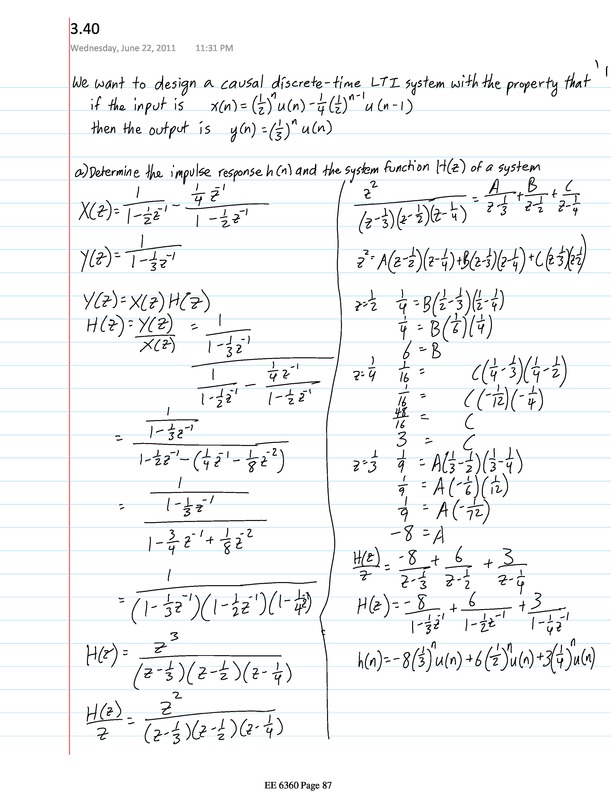 3.40
Wednesday, June 22, 2011 11:31 PM
We want to design a causal discrete-time LTI system with the property that
if the input is x(n) = (1/2)^n u(n) - 1/4 (1/2)^(n-1) u(n-1)
then the output is y(n) = (1/3)^n u(n)
a) Determine the impulse response h(n) and the system function H(z) of a system
X(z) = 1/(1 - 1/2 z^-1) - (1/4 z^-1)/(1 - 1/2 z^-1)
Y(z) = 1/(1 - 1/3 z^-1)
Y(z) = X(z) H(z)
H(z) = Y(z)/X(z) = (1/(1 - 1/3 z^-1)) / (1/(1 - 1/2 z^-1) - (1/4 z^-1)/(1 - 1/2 z^-1))
= (1/(1 - 1/3 z^-1)) / (1 - 1/2 z^-1 - (1/4 z^-1 - 1/8 z^-2))
= (1/(1 - 1/3 z^-1)) / (1 - 3/4 z^-1 + 1/8 z^-2)
= 1/((1 - 1/3 z^-1)(1 - 1/2 z^-1)(1 - 1/4 z^-1))
H(z) = z^3/((z - 1/3)(z - 1/2)(z - 1/4))
H(z)/z = z^2/((z - 1/3)(z - 1/2)(z - 1/4))
z^2/((z - 1/3)(z - 1/2)(z - 1/4)) = A/(z - 1/3) + B/(z - 1/2) + C/(z - 1/4)
z^2 = A(z - 1/2)(z - 1/4) + B(z - 1/3)(z - 1/4) + C(z - 1/3)(z - 1/2)
z = 1/2 1/4 = B(1/2 - 1/3)(1/2 - 1/4)
1/4 = B(1/6)(1/4)
6 = B
z = 1/4 1/16 = C(1/4 - 1/3)(1/4 - 1/2)
1/16 = C(-1/12)(-1/4)
48/16 = C
3 = C
z = 1/3 1/9 = A(1/3 - 1/2)(1/3 - 1/4)
1/9 = A(-1/6)(1/12)
1/9 = A(-1/72)
-8 = A
H(z)/z = -8/(z - 1/3) + 6/(z - 1/2) + 3/(z - 1/4)
H(z) = -8/(1 - 1/3 z^-1) + 6/(1 - 1/2 z^-1) + 3/(1 - 1/4 z^-1)
h(n) = -8(1/3)^n u(n) + 6(1/2)^n u(n) + 3(1/4)^n u(n)
EE 6360 Page 87